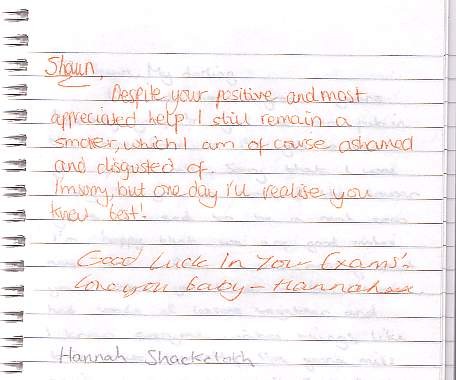 Shaun,
Despite your positive and most
appreciated help I still remain a
smoker, which I am of course ashamed
and disgusted of.
I'm sorry, but one day i'll realise you
knew best!
Good Luck In Your Exams
Love you baby - Hannah
Hannah